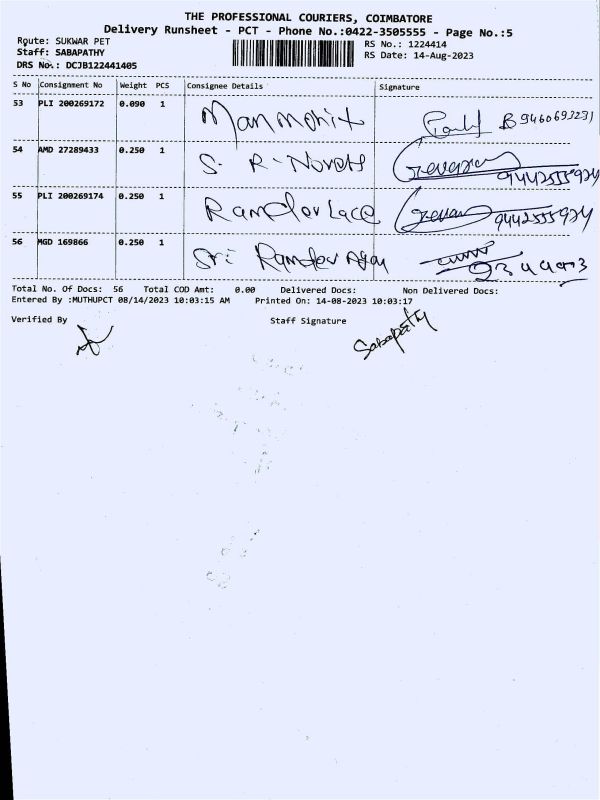 THE PROFESSIONAL COURIERS, COIMBATORE
Delivery Runsheet - PCT - Phone No.:0422-3505555 - Page No.:5
Route: SUKWAR PET
RS No.: 1224414
Staff: SABAPATHY
RS Date: 14-Aug-2023
DRS No.: DCJB122441405
S No Consignment No Weight PCS Consignee Details Signature
53 PLI 200269172 0.090 1 Manmohit 9460693231
54 AMD 27289433 0.250 1 S. R. Novels 9442555924
55 PLI 200269174 0.250 1 Ramdev Lace 9442555924
56 MGD 169866 0.250 1 Sri Ramdev
Total No. Of Docs: 56 Total COD Amt: 0.00 Delivered Docs: Non Delivered Docs:
Entered By :MUTHUPCT 08/14/2023 10:03:15 AM Printed On: 14-08-2023 10:03:17
Verified By Staff Signature
Sabapathy